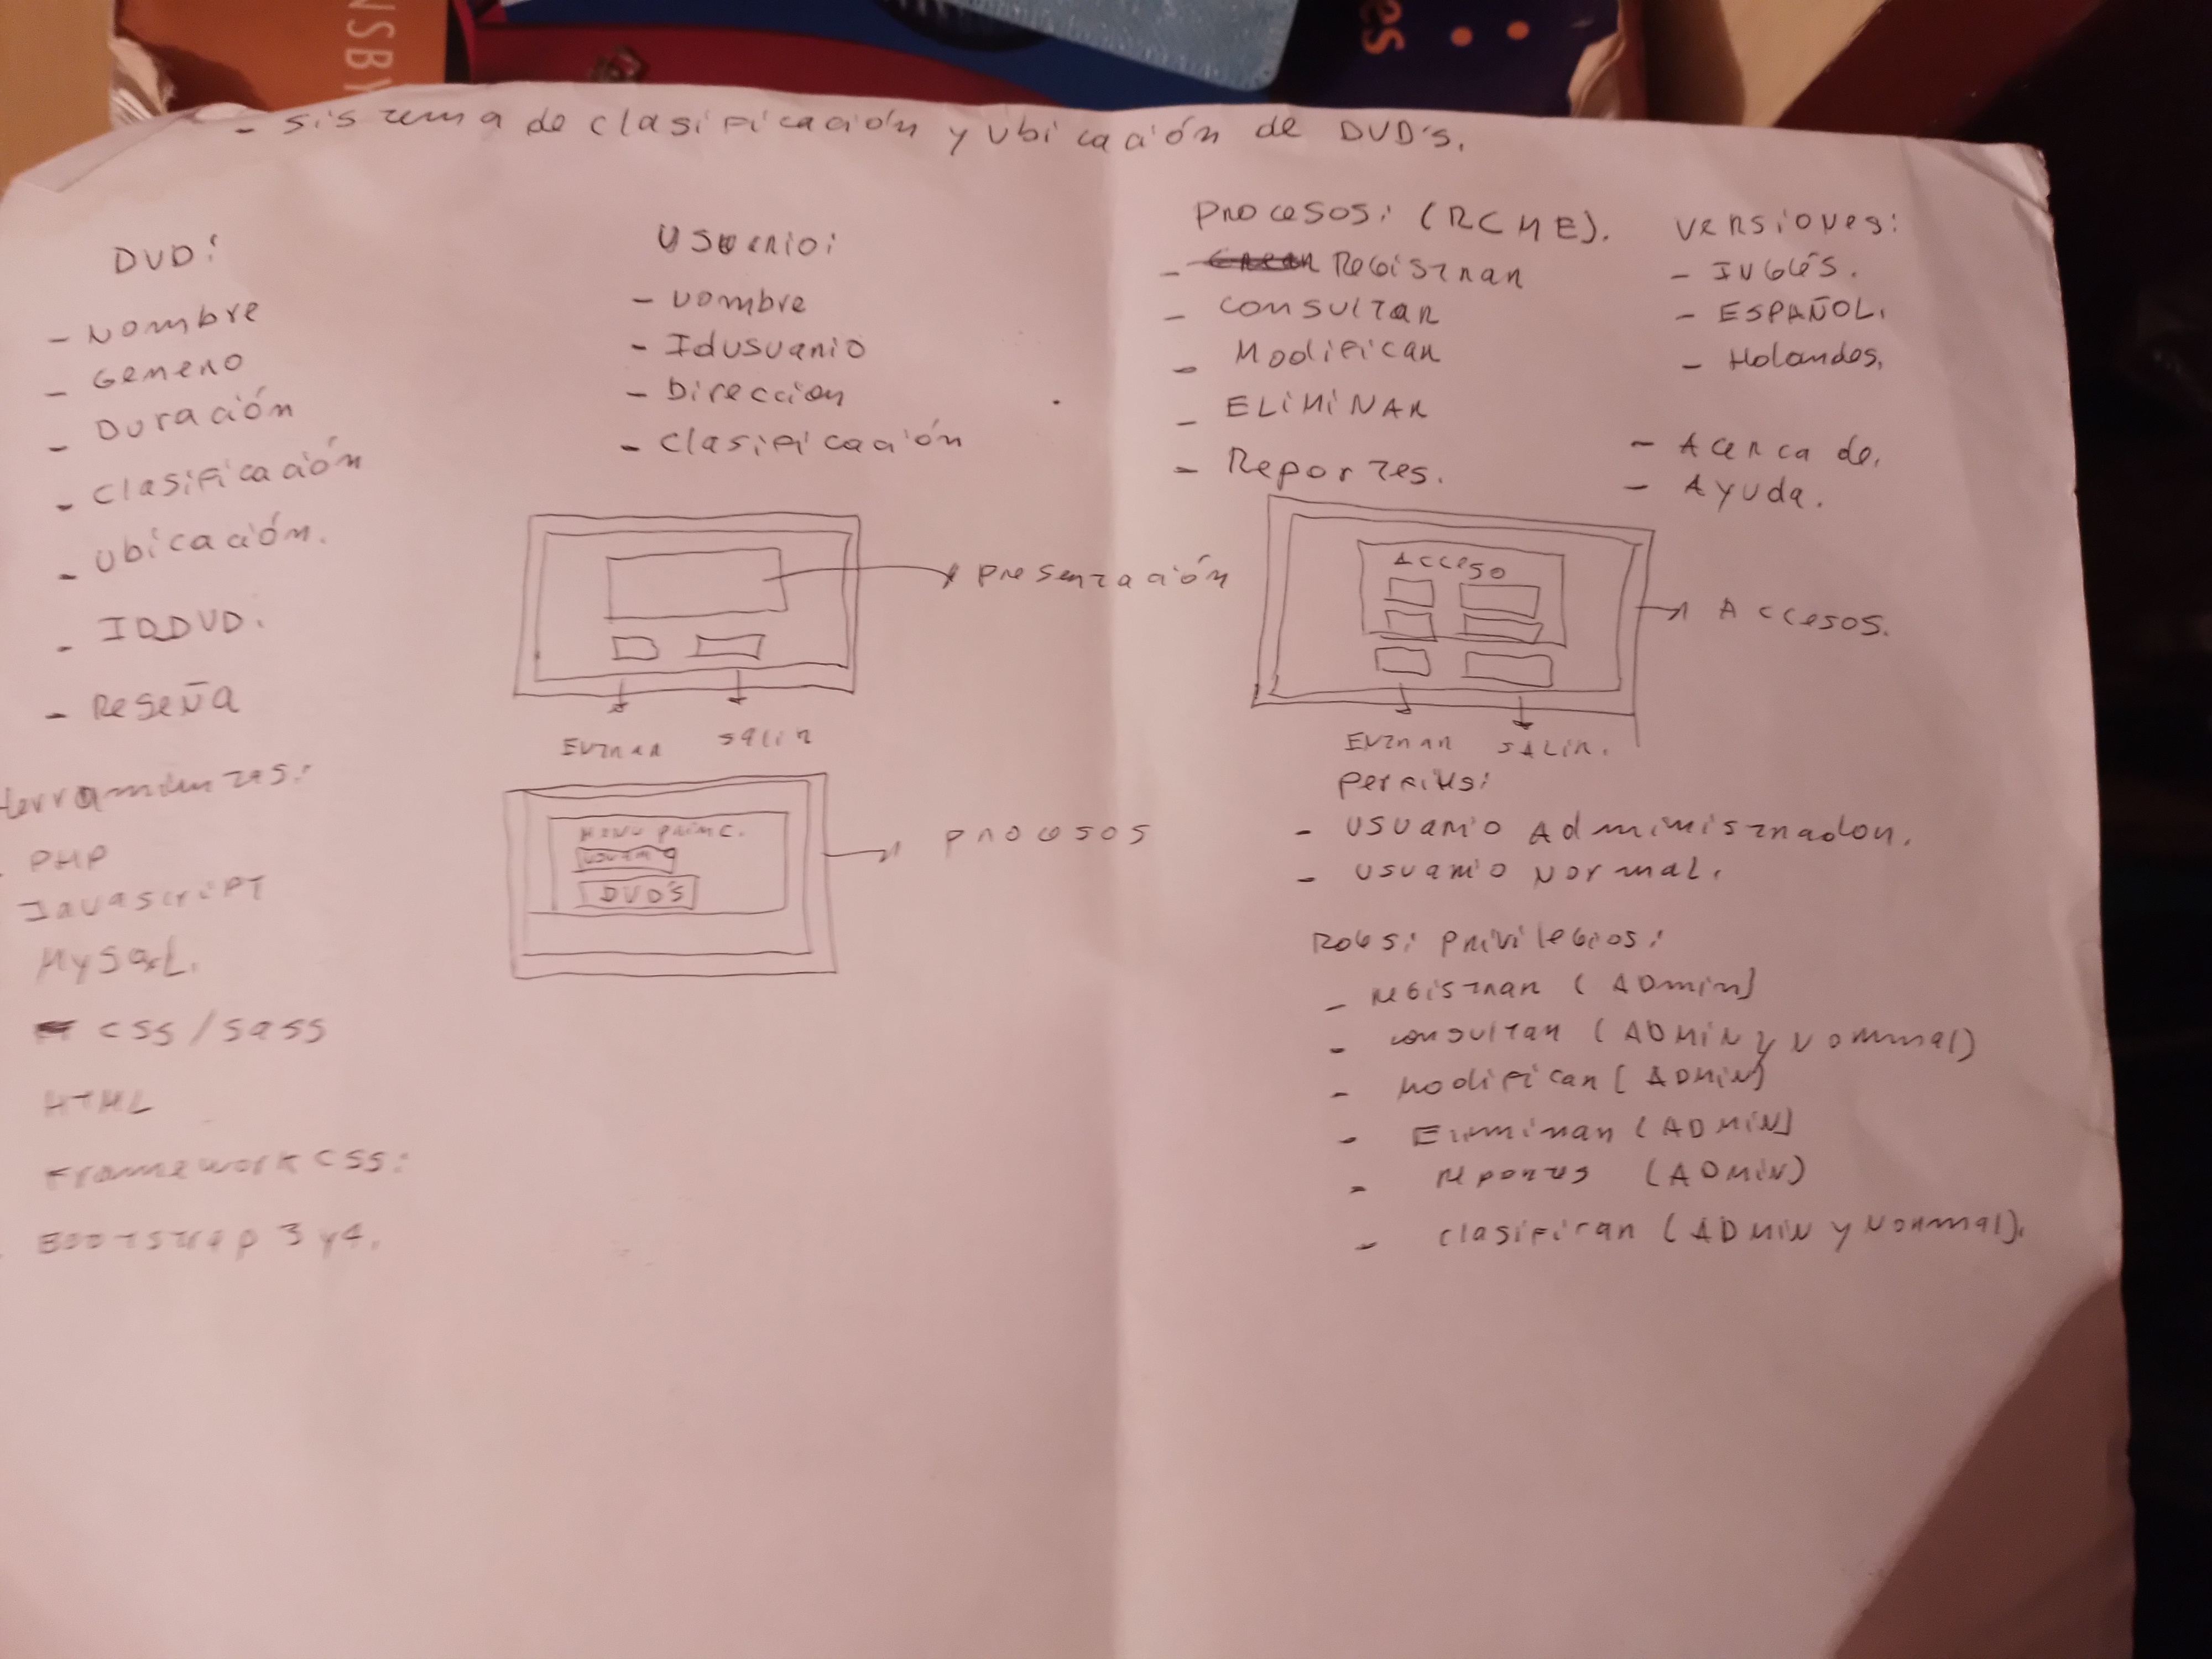 NSBY
es
- sistema de clasificación y ubicación de DVD's.
DVD:
- Nombre
- Genero
- Duración
- clasificación
- ubicación.
- IDDVD.
- Reseña
Herramientas:
PHP
Javascript
MySQL.
css / sass
HTML
Framework css:
Bootstrap 3 y 4.
Usuario:
- nombre
- Idusuario
- Direccion
- clasificación
presentación
Entrar salir
Menu princ.
usuario
DVD'S
procesos
Procesos: (RCME).
- Crear Registrar
- consultar
- Modificar
- ELIMINAR
- Reportes.
versiones:
- Inglés.
- ESPAÑOL.
- Holandes.
- Acerca de.
- Ayuda.
Acceso
Accesos.
Entrar SALIR.
- usuario Administrador.
- usuario Normal.
Roles: privilegios:
- registrar (ADmin)
- consultar (ADMIN y Normal)
- modificar (ADMIN)
- Eliminar (ADMIN)
- reportes (ADMIN)
- clasificar (ADMIN y Normal).